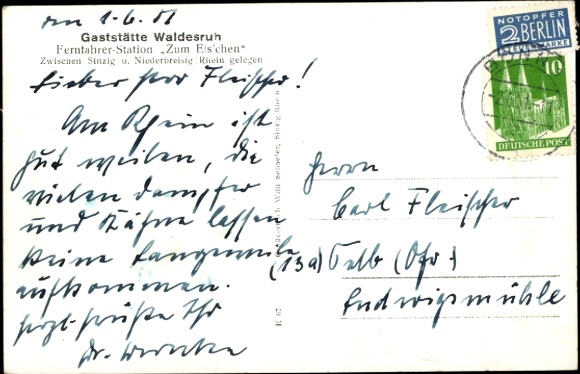 den 1.6.51
Gaststätte Waldesruh
Fernfahrer-Station „Zum Els'chen"
Zwischen Sinzig u. Niederbreisig/Rhein gelegen
Lieber Herr Fleischer!
Am Rhein ist
gut weilen, die
vielen Dampfer
und Kähne lassen
keine Langeweile
aufkommen.
herzl. Grüße Ihr
Dr.
NOTOPFER
2 BERLIN
STEUERMARKE
10
DEUTSCHE POST
BONN
Herrn
Carl Fleischer
(13a) Selb (Ofr.)
Ludwigsmühle
Willi Schaefer, Sinzig Rhein
E 67